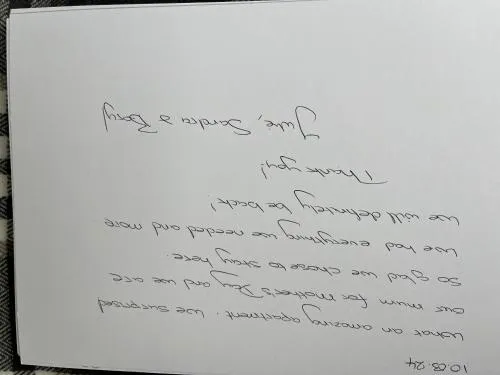 10.03.24
What an amazing apartment. We surprised
our mum for Mother's Day and we are
so glad we chose to stay here.
We had everything we needed and more
We will definitely be back!
Thank you!
Julie, Sandra &